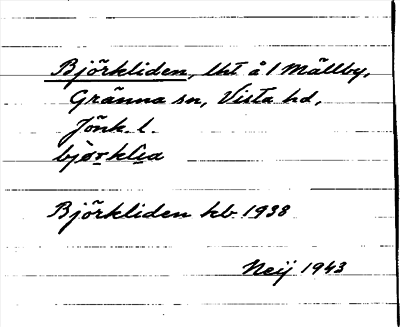 Björkliden, lht å 1 Mällby,
Gränna sn, Vista hd,
Jönk. l.
bjø̀rklia
Björkliden kb 1938
Neij 1943